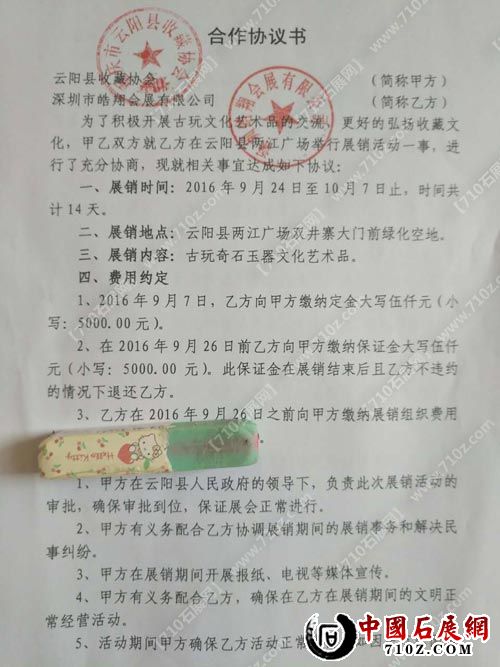 合作协议书
云阳县收藏协会 （简称甲方）
深圳市皓翔会展有限公司 （简称乙方）
为了积极开展古玩文化艺术品的交流，更好的弘扬收藏文
化，甲乙双方就乙方在云阳县两江广场举行展销活动一事，进
行了充分协商，现就相关事宜达成如下协议：
一、展销时间：2016年9月24日至10月7日止，时间共
计14天。
二、展销地点：云阳县两江广场双井寨大门前绿化空地。
三、展销内容：古玩奇石玉器文化艺术品。
四、费用约定
1、2016年9月7日，乙方向甲方缴纳定金大写伍仟元（小
写：5000.00元）。
2、在2016年9月26日前乙方向甲方缴纳保证金大写伍仟
元（小写：5000.00元）。此保证金在展销结束后且乙方不违约
的情况下退还乙方。
3、乙方在2016年9月26日之前向甲方缴纳展销组织费用
Hello Kitty
1、甲方在云阳县人民政府的领导下，负责此次展销活动的
审批，确保审批到位，保证展会正常进行。
2、甲方有义务配合乙方协调展销期间的展销事务和解决民
事纠纷。
3、甲方在展销期间开展报纸、电视等媒体宣传。
4、甲方有义务配合乙方，确保在乙方在展销期间的文明正
常经营活动。
5、活动期间甲方确保乙方活动正常
中國石展網
710Z.COM
【710z石展网】